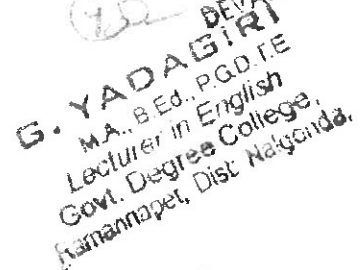 DEVA
G. YADAGIRI
M.A., B.Ed., P.G.D.T.E
Lecturer in English
Govt. Degree College,
Ramannapet, Dist: Nalgonda.